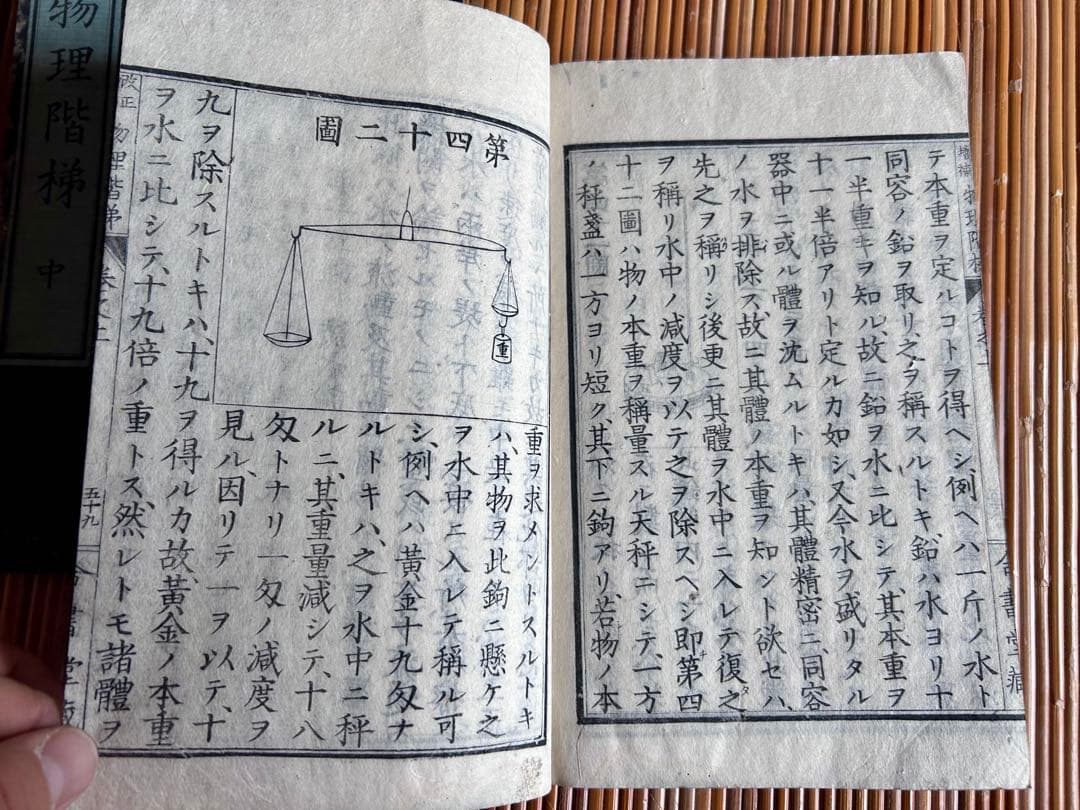 増補 物理階梯
テ本重ヲ定ルコトヲ得ヘシ、例ヘハ一斤ノ水ト
同容ノ鉛ヲ取リ、之ヲ稱スルトキ、鉛ハ水ヨリ十
一半重キヲ知ル、故ニ鉛ヲ水ニ比シテ、其本重ヲ
十一半倍アリト定ルカ如シ、又今水ヲ盛リタル
器中ニ或ル體ヲ沈ムルトキハ、其體精密ニ、同容
ノ水ヲ排除ス、故ニ其體ノ本重ヲ知ント欲セハ、
先之ヲ稱リシ後更ニ其體ヲ水中ニ入レテ復之
ヲ稱リ水中ノ減度ヲ以テ之ヲ除スヘシ即第四
十二圖ハ物ノ本重ヲ稱量スル天秤ニシテ、一方
ノ秤盞ハ一方ヨリ短ク、其下ニ鉤アリ、若物ノ本
第四十二圖
重
重ヲ求メントスルトキ
ハ、其物ヲ此鉤ニ懸ケ之
ヲ水中ニ入レテ稱ル可
シ、例ヘハ黄金十九匁ナ
ルトキハ、之ヲ水中ニ秤
ルニ、其重量減シテ、十八
匁トナリ一匁ノ減度ヲ
見ル、因リテ一ヲ以テ、十
九ヲ除スルトキハ、十九ヲ得ルカ故、黄金ノ本重
ヲ水ニ比シテ、十九倍ノ重トス、然レトモ諸體ヲ
改正 物理階梯 卷之二 五十九
物理階梯 中